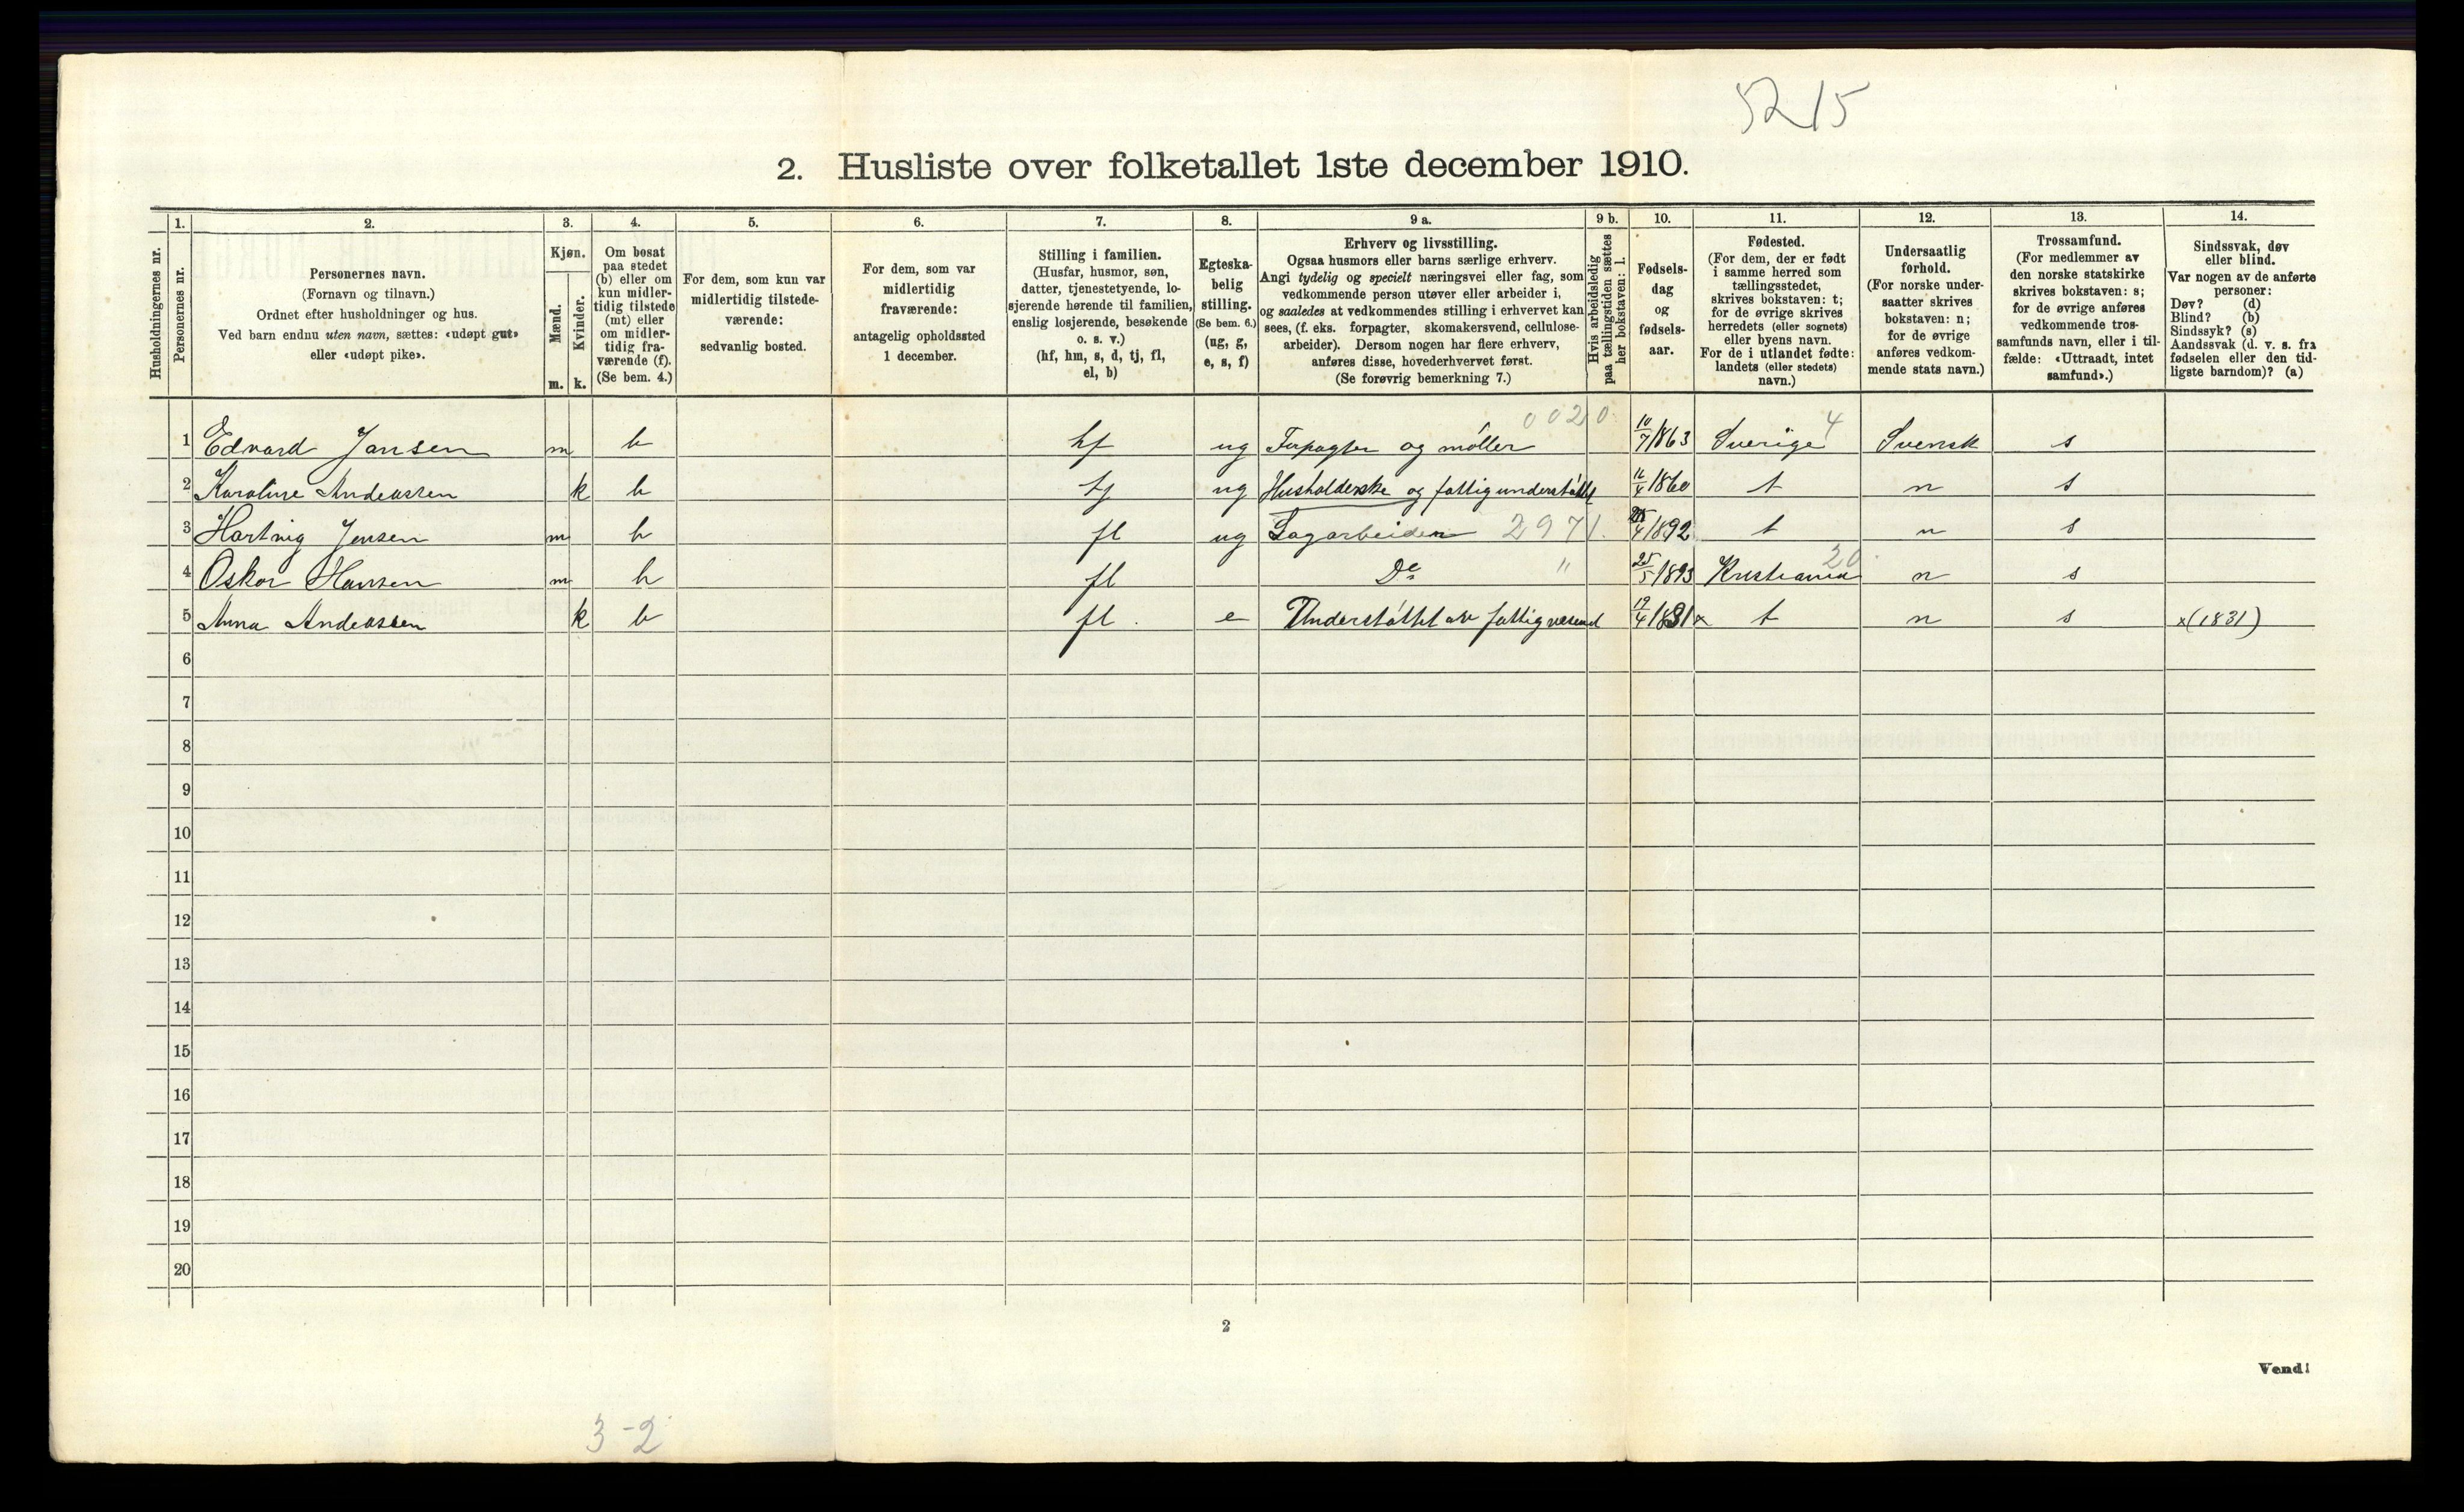 5215
2. Husliste over folketallet 1ste december 1910.
Husholdningernes nr.
1.
Personernes nr.
2.
Personernes navn.
(Fornavn og tilnavn.)
Ordnet efter husholdninger og hus.
Ved barn endnu uten navn, sættes: «udøpt gut»
eller «udøpt pike».
3.
Kjøn.
Mænd.
Kvinder.
m. k.
4.
Om bosat
paa stedet
(b) eller om
kun midler-
tidig tilstede
(mt) eller
om midler-
tidig fra-
værende (f).
(Se bem. 4.)
5.
For dem, som kun var
midlertidig tilstede-
værende:
sedvanlig bosted.
6.
For dem, som var
midlertidig
fraværende:
antagelig opholdssted
1 december.
7.
Stilling i familien.
(Husfar, husmor, søn,
datter, tjenestetyende, lo-
sjerende hørende til familien,
enslig losjerende, besøkende
o. s. v.)
(hf, hm, s, d, tj, fl,
el, b)
8.
Egteska-
belig
stilling.
(Se bem. 6.)
(ug, g,
e, s, f)
9 a.
Erhverv og livsstilling.
Ogsaa husmors eller barns særlige erhverv.
Angi tydelig og specielt næringsvei eller fag, som
vedkommende person utøver eller arbeider i,
og saaledes at vedkommendes stilling i erhvervet kan
sees, (f. eks. forpagter, skomakersvend, cellulose-
arbeider). Dersom nogen har flere erhverv,
anføres disse, hovederhvervet først.
(Se forøvrig bemerkning 7.)
9 b.
Hvis arbeidsledig
paa tællingstiden sættes
her bokstaven: l.
10.
Fødsels-
dag
og
fødsels-
aar.
11.
Fødested.
(For dem, der er født
i samme herred som
tællingsstedet,
skrives bokstaven: t;
for de øvrige skrives
herredets (eller sognets)
eller byens navn.
For de i utlandet fødte:
landets (eller stedets)
navn.)
12.
Undersaatlig
forhold.
(For norske under-
saatter skrives
bokstaven: n;
for de øvrige
anføres vedkom-
mende stats navn.)
13.
Trossamfund.
(For medlemmer av
den norske statskirke
skrives bokstaven: s;
for de øvrige anføres
vedkommende tros-
samfunds navn, eller i til-
fælde: «Uttraadt, intet
samfund».)
14.
Sindssvak, døv
eller blind.
Var nogen av de anførte
personer:
Døv? (d)
Blind? (b)
Sindssyk? (s)
Aandssvak (d. v. s. fra
fødselen eller den tid-
ligste barndom)? (a)
0020 4
1 Edvard Jansen m b hf ug Forpagter og møller 10/7 1863 Sverige Svensk s
2 Karoline Andeassen k b tj ug Husholderske og fattigunderstøttet 1860 t n s
3 Hartvig Jensen m b fl ug Sagarbeider 2971. 1892 t n s
4 Oskar Hansen m b fl Do " 25/5 1893 Kristiania 20 n s
5 Anna Andeassen k b fl. e Understøttet av fattigvæsend 19/4 1831 x t n s x (1831)
6
7
8
9
10
11
12
13
14
15
16
17
18
19
20
2
Vend!
3-2